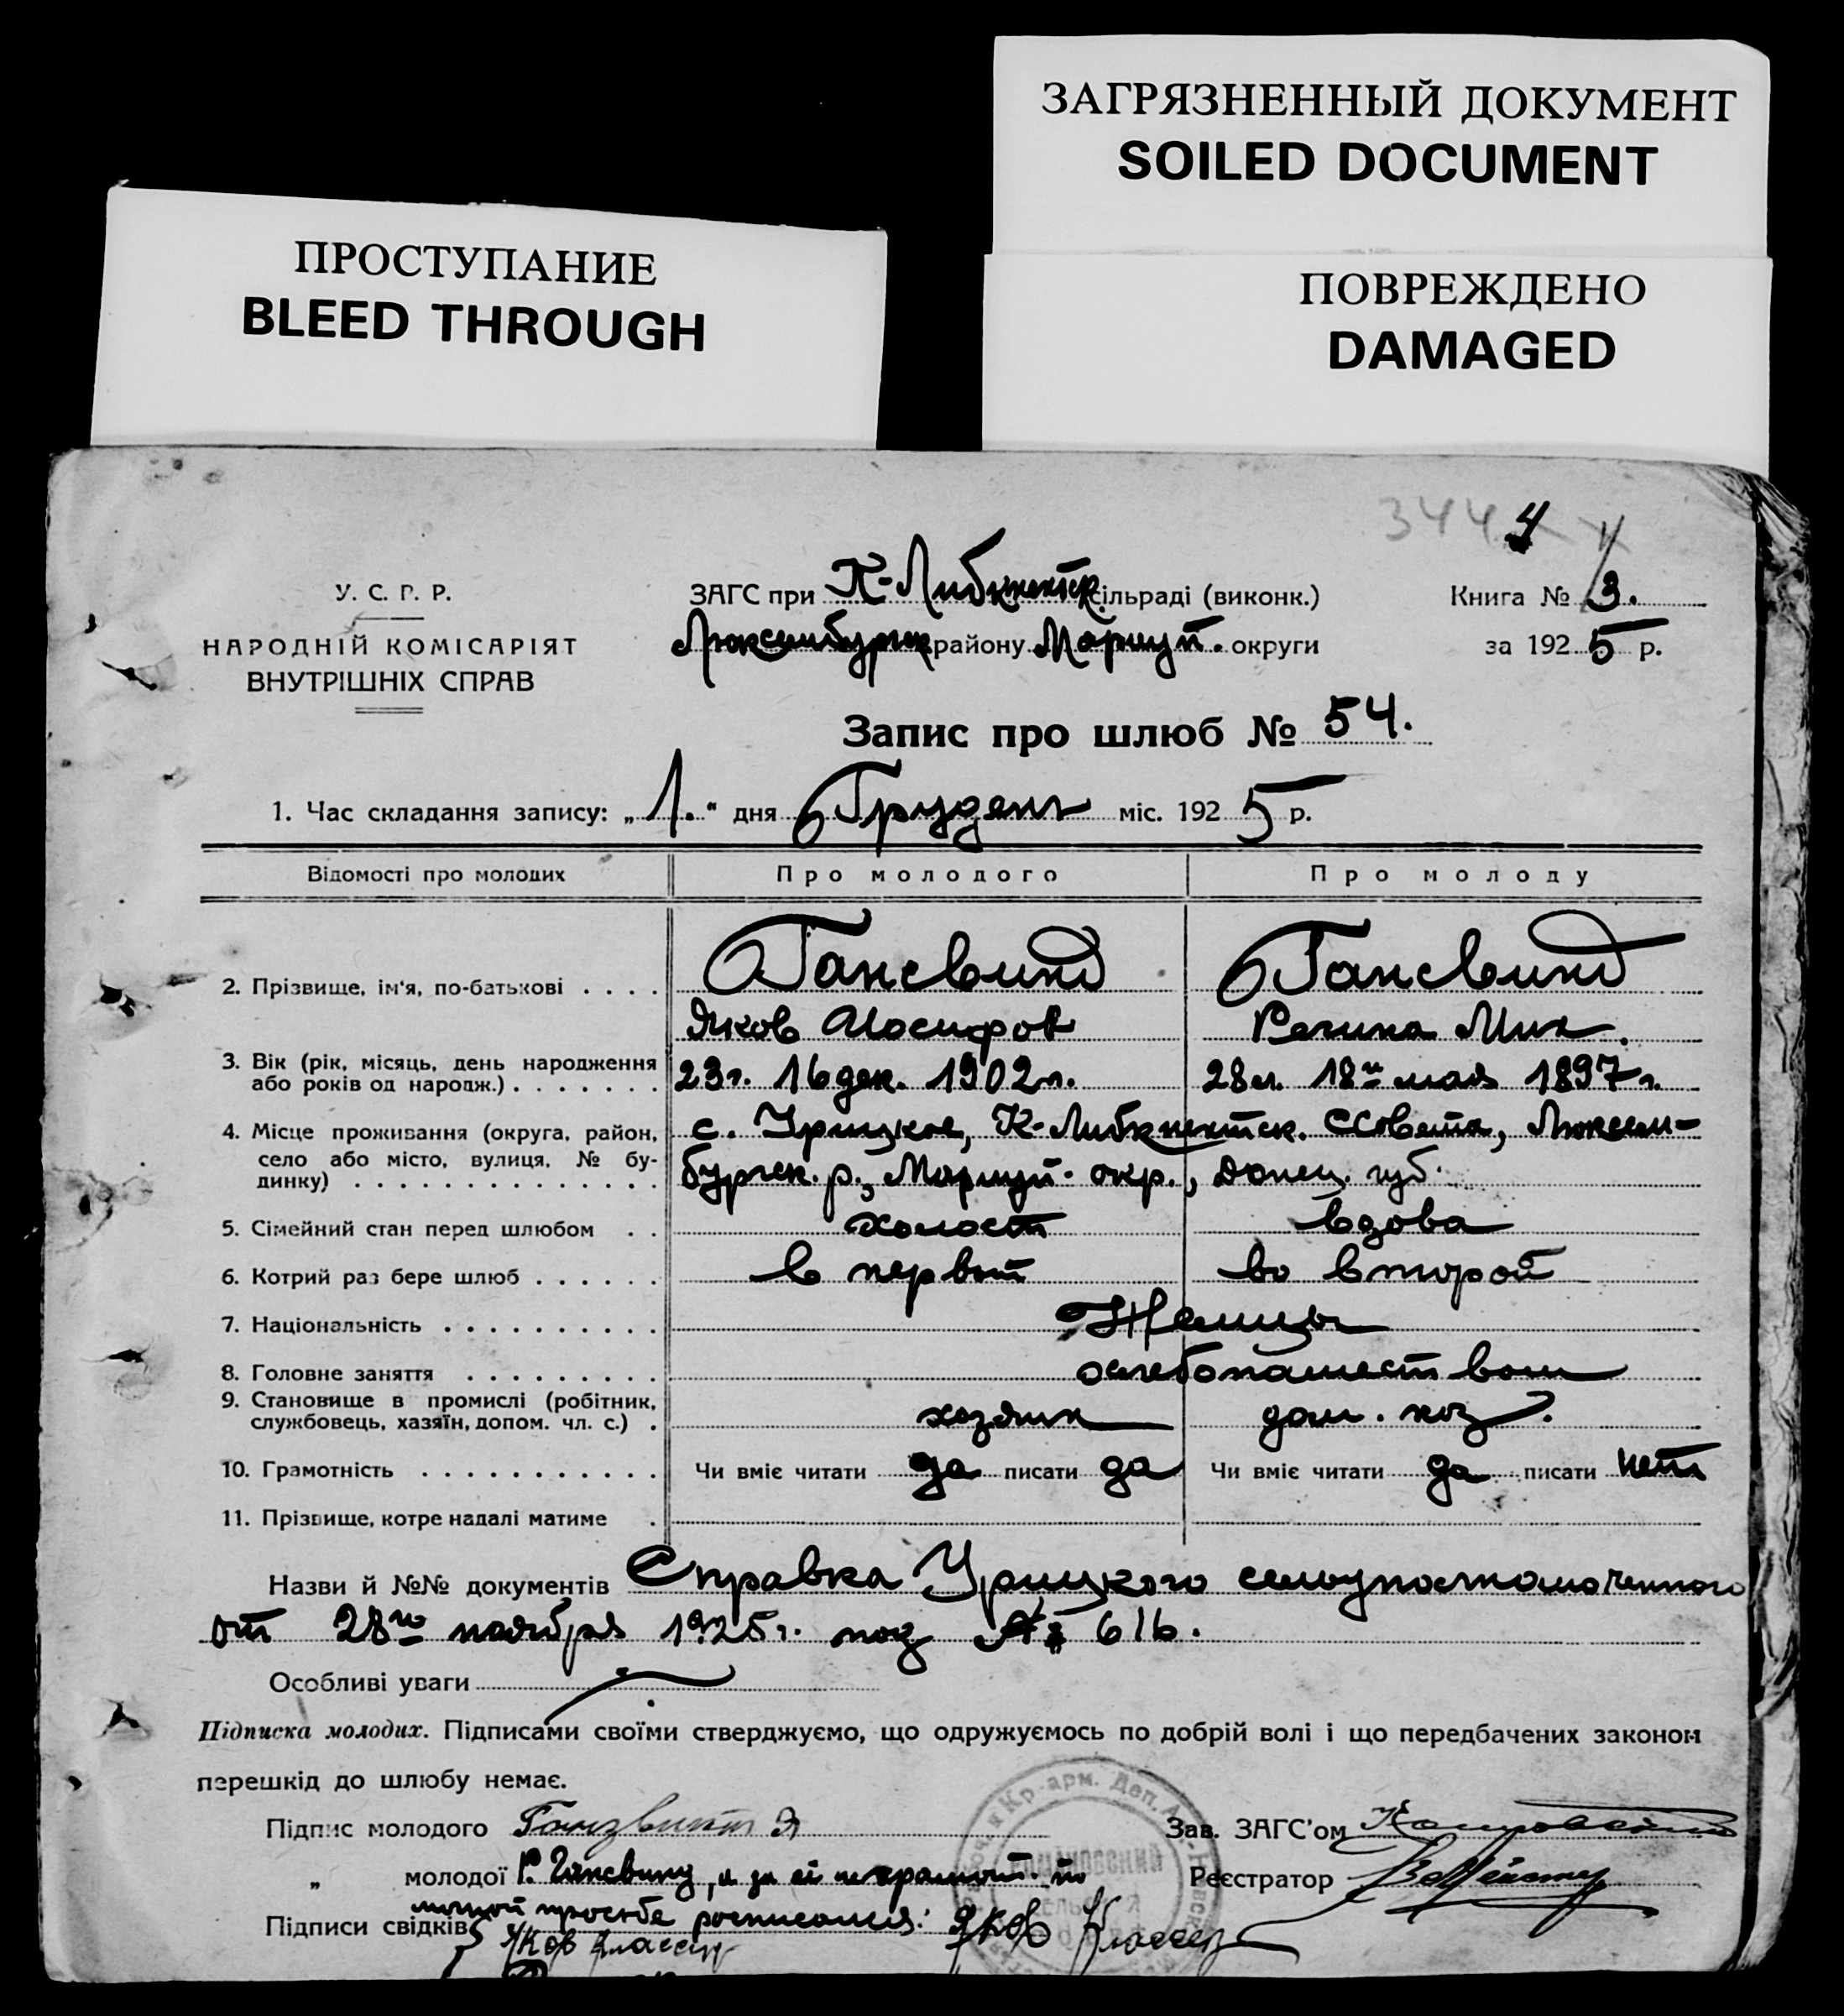 ЗАГРЯЗНЕННЫЙ ДОКУМЕНТ
SOILED DOCUMENT
ПРОСТУПАНИЕ
BLEED THROUGH
ПОВРЕЖДЕНО
DAMAGED
344 4
У. С. Р. Р.
НАРОДНІЙ КОМІСАРІЯТ
ВНУТРІШНІХ СПРАВ
ЗАГС при К-Либкнехтск. сільраді (виконк.)
Люксембургск району Мариуп. округи
Книга № 3.
за 1925 р.
Запис про шлюб № 54.
1. Час складання запису: „1.“ дня Грудень міс. 1925 р.
Відомості про молодих Про молодого Про молоду
2. Прізвище, ім'я, по-батькові . . . . Гансвинд Гансвинд
Яков Иосифов Регина Мих.
3. Вік (рік, місяць, день народження або років од народж.) . . . . . . . 23 г. 16 дек. 1902 г. 28 л. 18го мая 1897 г.
4. Місце проживання (округа, район, с. Урицкое, К-Либкнехтск. ССовета, Люксем-
село або місто, вулиця, № бу- бургск. р., Мариуп. окр., Донец. губ.
динку) . . . . . . . . . . . . . .
5. Сімейний стан перед шлюбом . . холост вдова
6. Котрий раз бере шлюб . . . . . . в первый во второй
7. Національність . . . . . . . . . . Немцы
8. Головне заняття . . . . . . . . . хлебопашеством
9. Становище в промислі (робітник,
службовець, хазяїн, допом. чл. с.) . хозяин дом. хоз.
10. Грамотність . . . . . . . . . . . Чи вміє читати да писати да Чи вміє читати да писати нет
11. Прізвище, котре надалі матиме .
Назви й №№ документів Справка Урицкого сельуполномоченного
от 28го ноября 1925 г. под № 616.
Особливі уваги
Підписка молодих. Підписами своїми стверджуємо, що одружуємось по добрій волі і що передбачених законом
перешкід до шлюбу немає.
Підпис молодого Ганзвинт Я
Зав. ЗАГС'ом
„ молодої Р. Гансвинд, а за ей неграмотн. по
Реєстратор
личной просьбе росписался: Яков Классен
Підписи свідків Яков Классен